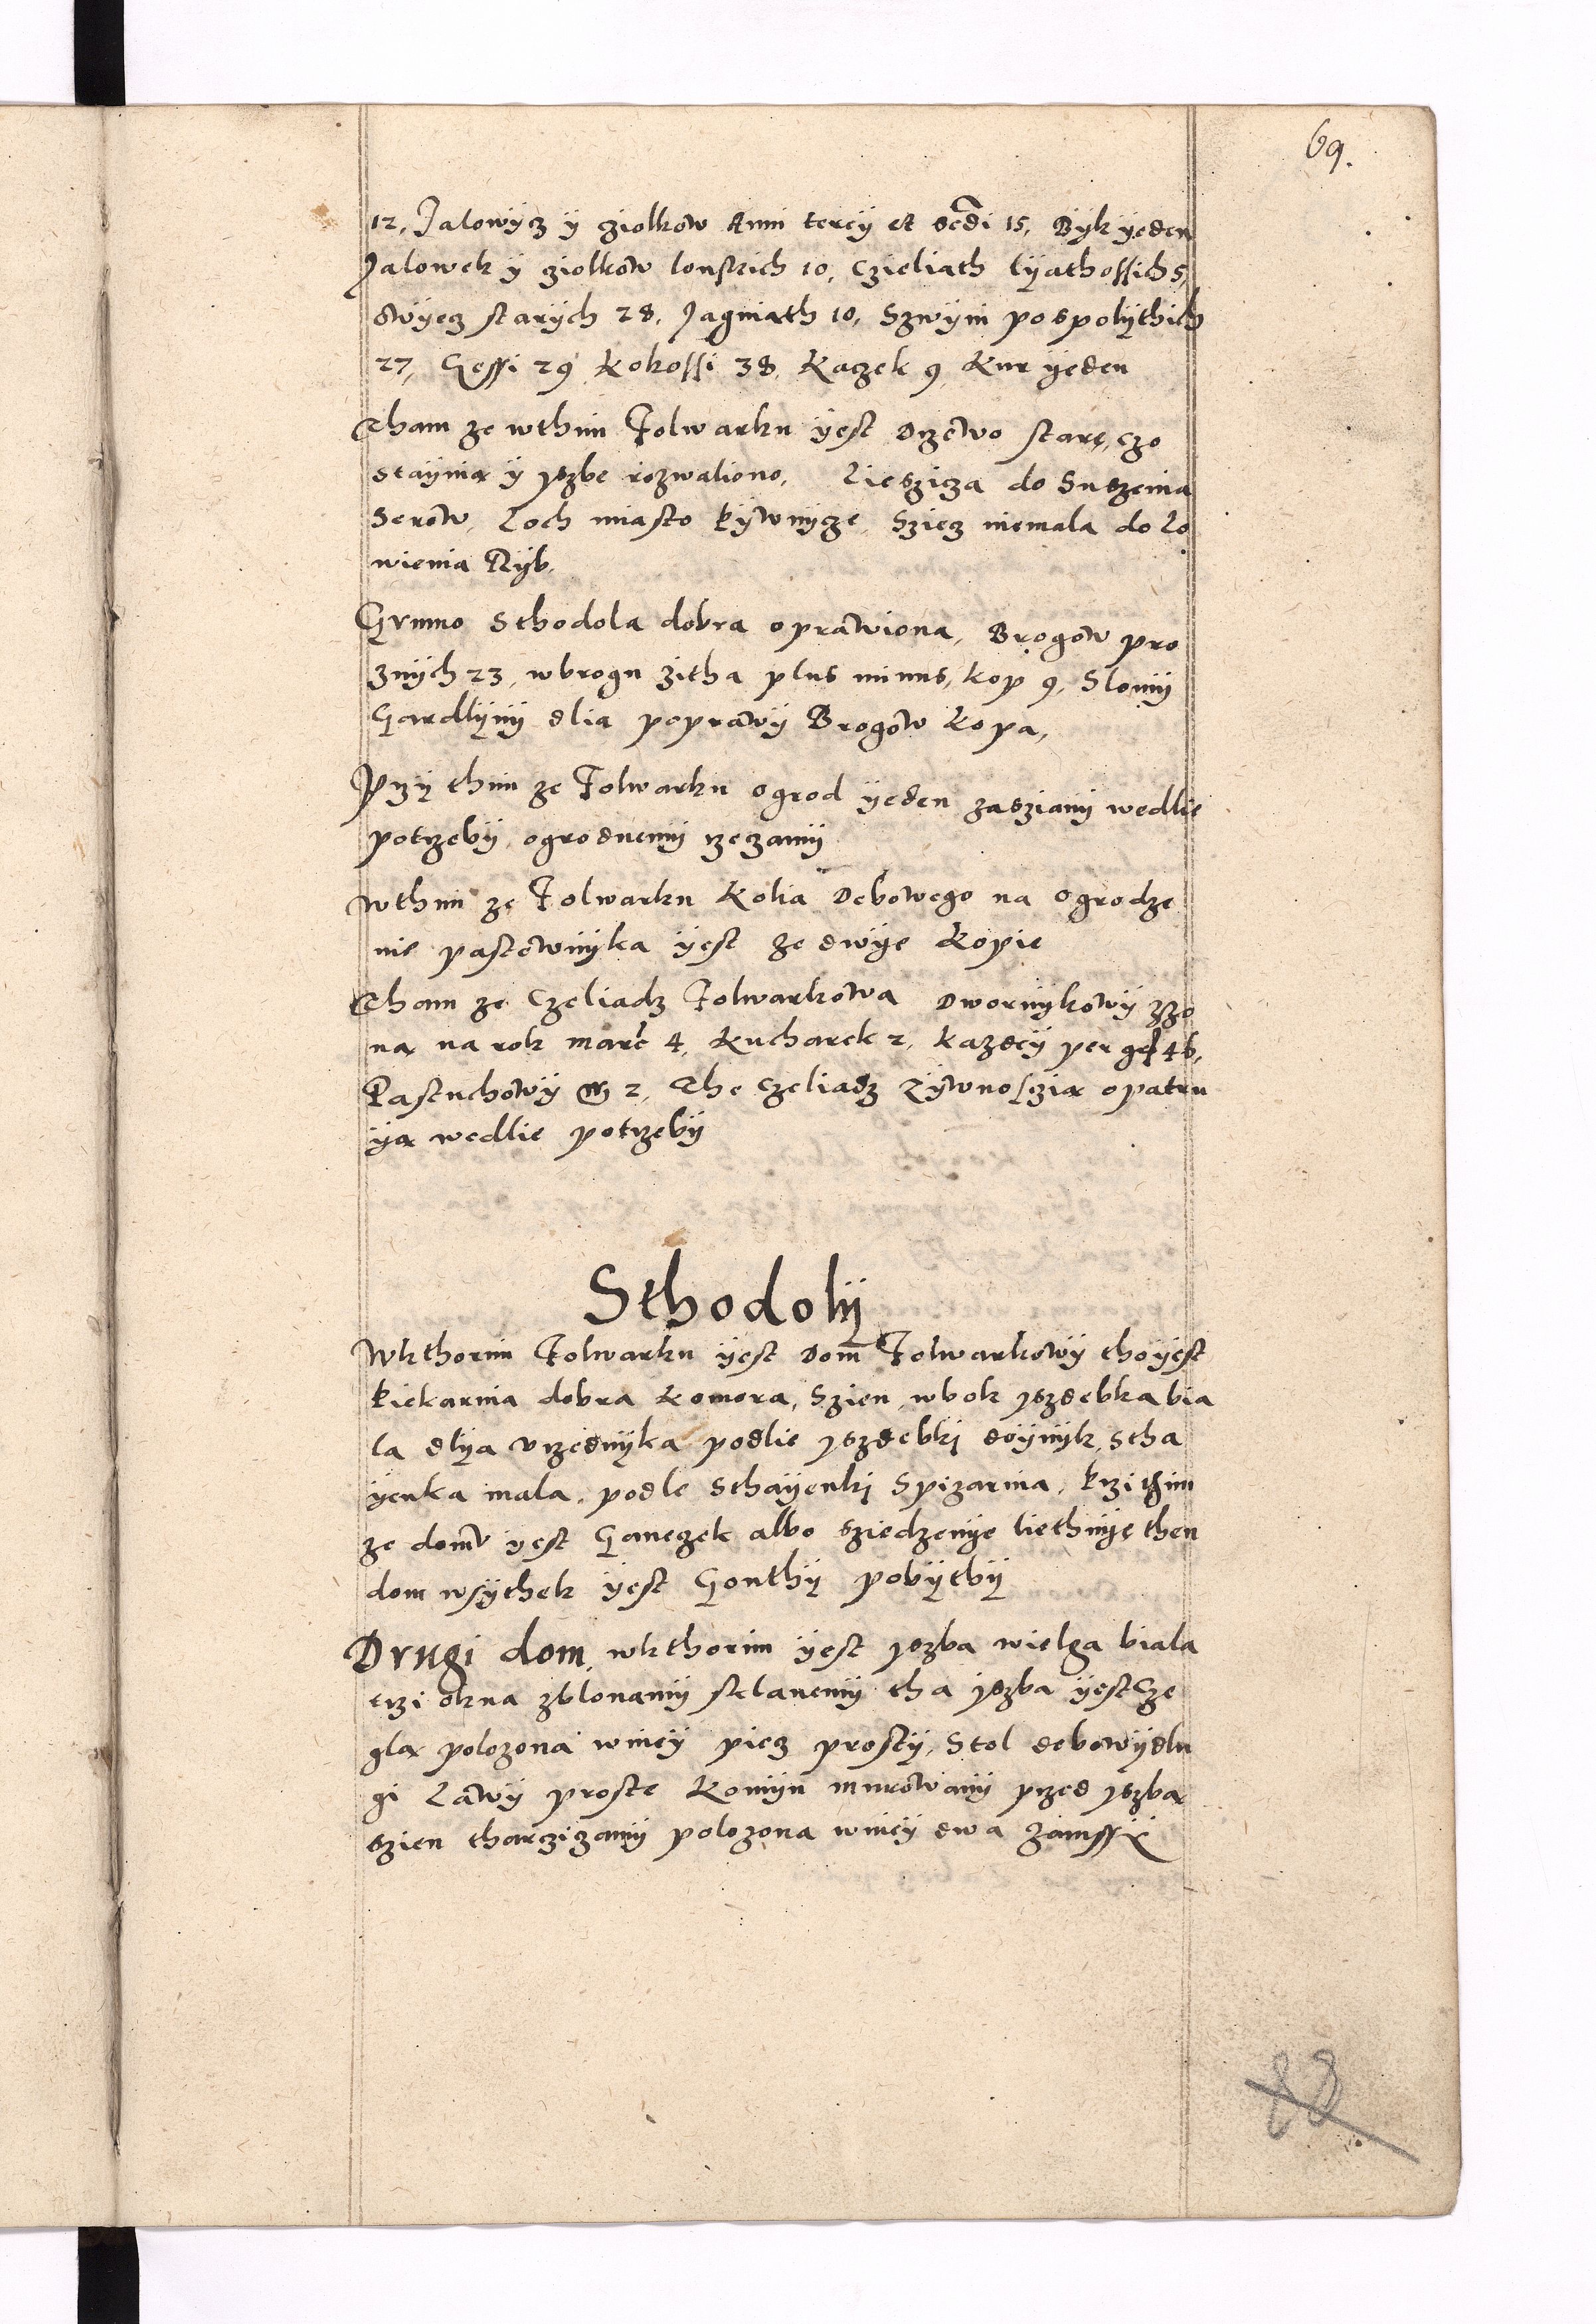 69.
12, Jalowÿcz ÿ ziolkow Anni tercÿ et scdi 15, Bÿk ÿeden
Jalowek ÿ ziolkow lonskich 10, Czieliath lÿathossich 5,
owÿecz starÿch 28, Jagniath 10, Szwÿni pospolÿthich
27, Gessi 29 Kokossi 38, Kaczek 9 Kur ÿeden
Tham ze wthim Folwarku ÿest Drzewo stare, czo
staÿnia ÿ yszbe rozwaliono, Lieszicza do Suszenia
Serow, Loch miasto Pÿwnÿcze, Sziecz niemala do Lo
wienia Rÿb,
Gvmno Sthodola dobra oprawiona, Brogow pro
znÿch 23, wbrogu zitha plus minus, kop 9, Slomÿ
Gardlÿnÿ dlia poprawÿ Brogow Kopa,
Przÿ thim ze Folwarku ogrod ÿeden zasziani wedlie
potrzebÿ, ogrodnemÿ rzeczamÿ
Wthim ze Folwarku Kolia Debowego na Ogrodze
nie pastewnÿka ÿest ze dwÿe Kopie
Tham ze Czeliadz Folwarkowa Dwornÿkowÿ zzo
na na rok marc 4, Kucharek 2, kazdeÿ per gr 46,
Pastuchowÿ m 2, The Czeliadz Zÿwnosczia opatru
ÿa wedlie potrzebÿ
Sthodolÿ
Wkthorim Folwarku ÿest Dom Folwarkowÿ tho ÿest
Piekarnia dobra Komora, Szien, wbok yszdebka bia
la dlÿa vrzednÿka podlie yszdebki doÿnÿk, Stha
ÿenka mala, podle Sthaÿenki Spizarnia, Przi thim
ze domv ÿest Ganeczek albo sziedzenÿe liethnÿe then
dom wsÿthek ÿest Gonthÿ pobÿthÿ
Drugi dom, wkthorim ÿest yszba wielga biala
trzi okna zblonamÿ sclanemÿ tha yszba ÿest Cze
gla polozona wnieÿ piecz prostÿ, Stol debowÿ dlu
gi Lawÿ proste Komÿn murowanÿ przed yszba
szien tharczizamÿ polozona wnieÿ dwa
88